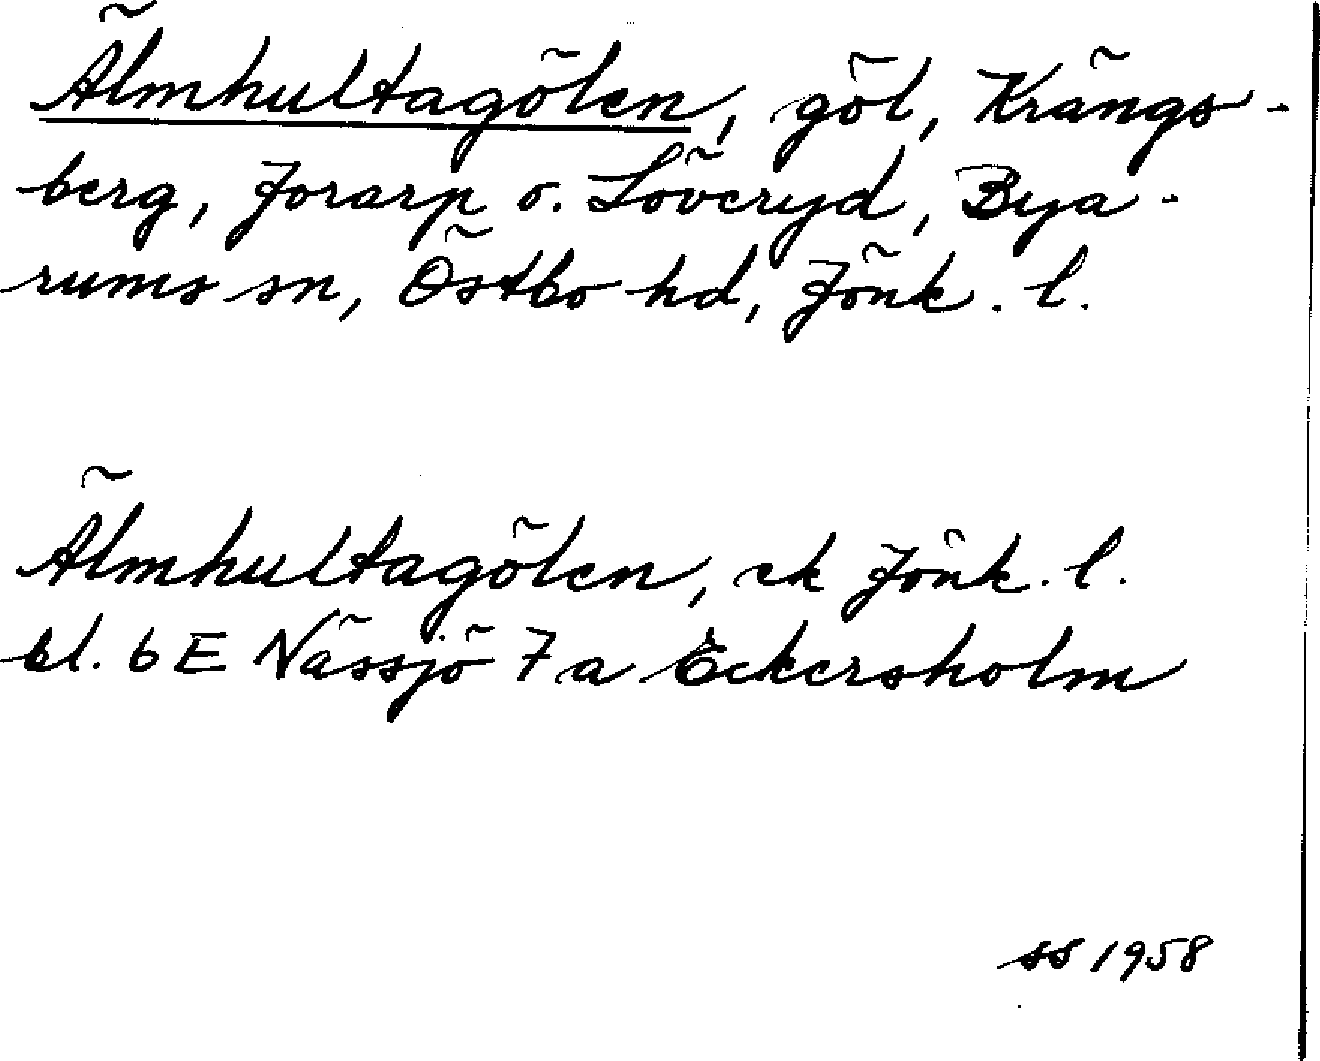 Älmhultagölen, göl, Krängs-
berg, Jorarp o. Löveryd, Bya-
rums sn, Östbo hd, Jönk. l.
Älmhultagölen, ek Jönk. l.
bl. 6 E Nässjö 7 a Eckersholm
SS 1958